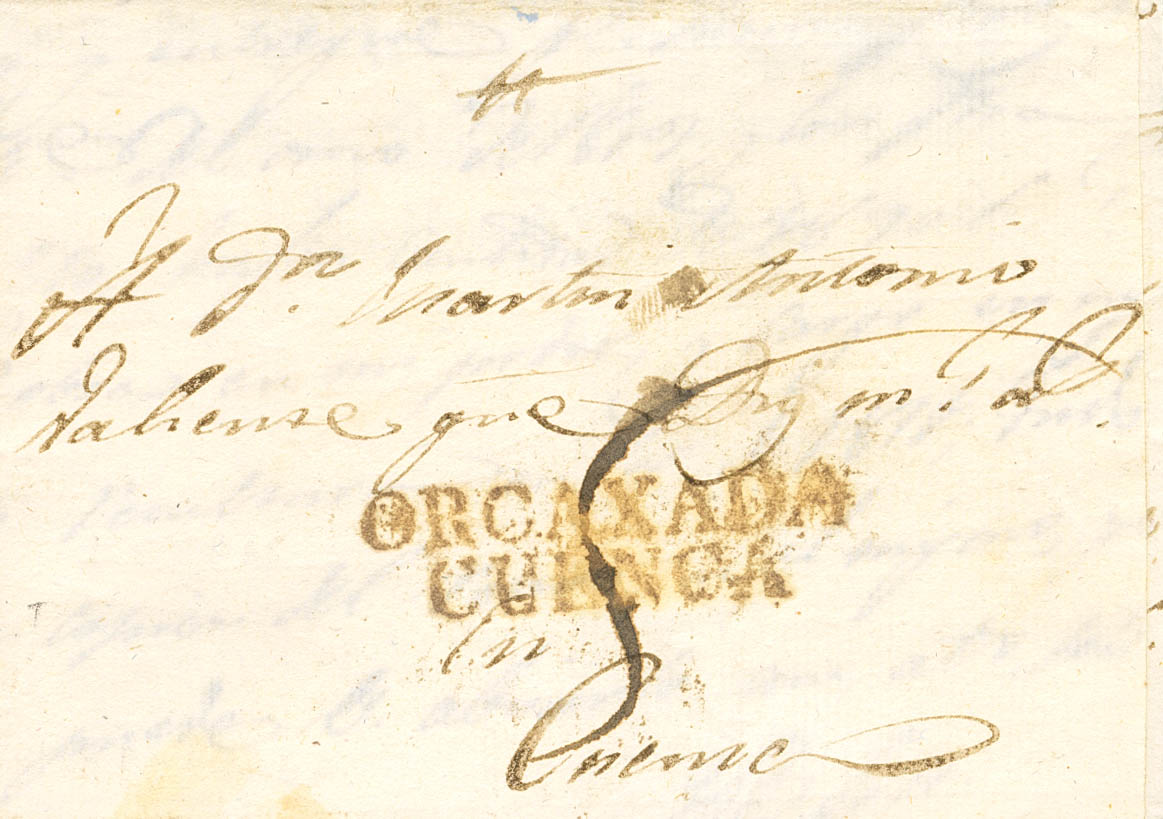 A Dn. Martin Antonio
Valiense que Dios m. a.
ORCAXADA
CUENCA
En
Cuenca